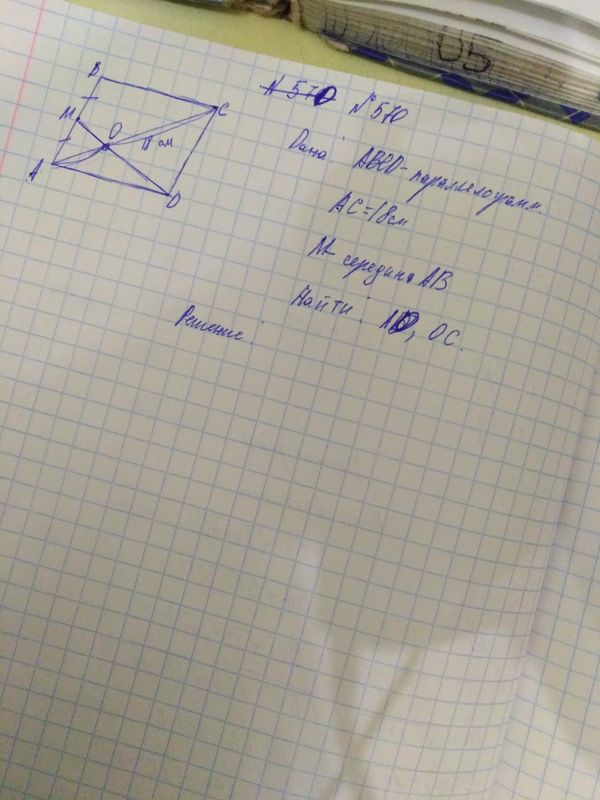 № 570 №570
Дано: ABCD - параллелограмм.
AC=18см
M - середина AB
Найти: AO, OC.
Решение:
B
M
O
C
18 см
A
D
05